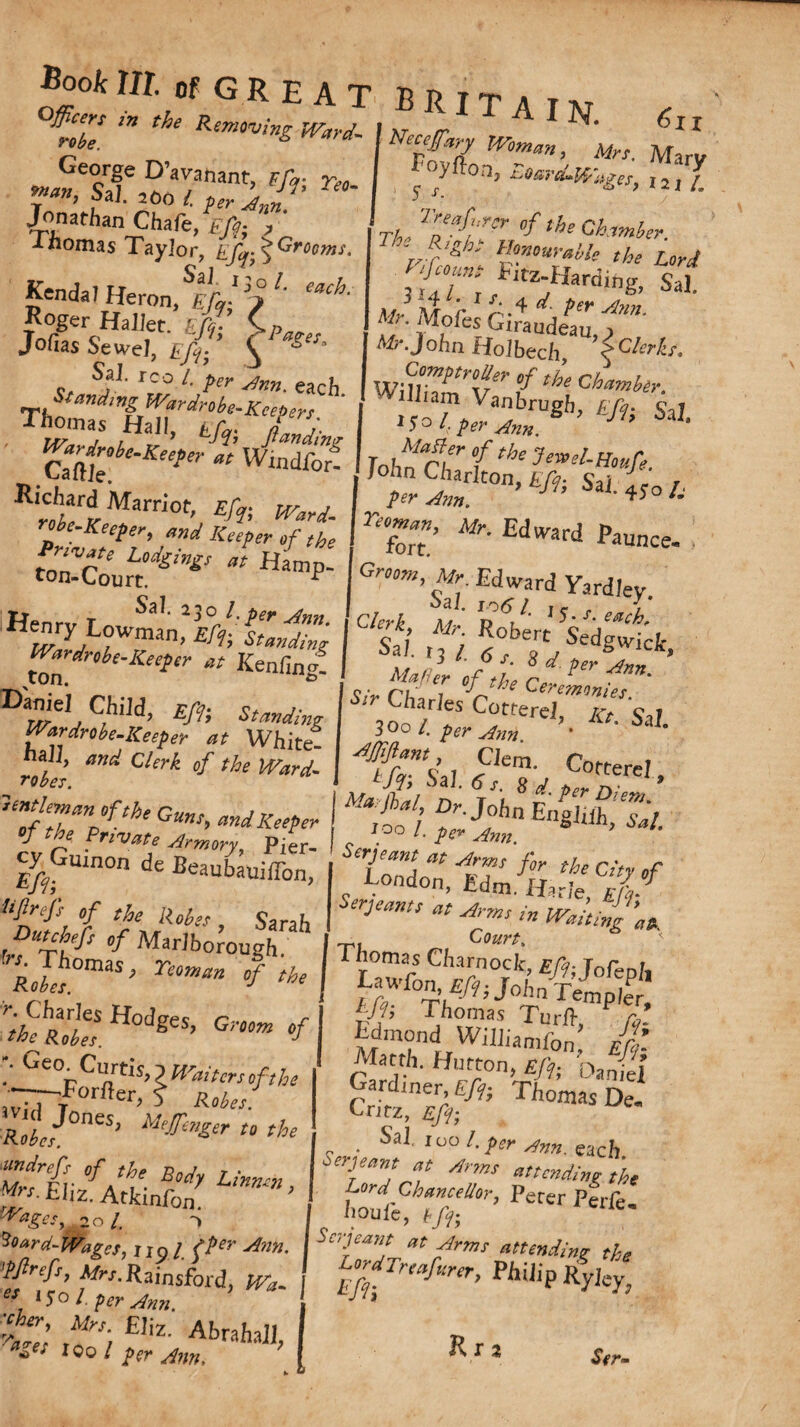 Book III. of GREAT BRITAIN. 611
Officers in the Removing Ward-
robe.
George D'avanant, Esq; Yeo-
man, Sal. 200 l. per Ann.
Jonathan Chase, Esq; }
Thomas Taylor, Esq; } Grooms.
Sal. 130 l. each.
Kendal Heron, Esq; }
Roger Hallet. Esq; } Pages.
Josias Sewel, Esq; }
Sal. 100 l. per Ann. each.
Standing Wardrobe-Keepers.
Thomas Hall, Esq; standing
Wardrobe-Keeper at Windsor-
Castle.
Richard Marriot, Esq; Ward-
robe-Keeper, and Keeper of the
Private Lodgings at Hamp-
ton-Court.
Sal. 230 l. per Ann.
Henry Lowman, Esq; Standing
Wardrobe-Keeper at Kensing-
ton.
Daniel Child, Esq; Standing
Wardrobe-Keeper at White-
hall, and Clerk of the Ward-
robes.
Gentleman of the Guns, and Keeper
of the Private Armory, Pier-
cy Guinon de Beaubauisson,
Esq;
Mistress of the Robes, Sarah
Dutchess of Marlborough.
Mrs. Thomas, Yeoman of the
Robes.
Mr. Charles Hodges, Groom of
the Robes.
Mr. Geo. Curtis, } Waiters of the
—Forster, } Robes.
David Jones, Messenger to the
Robes.
Laundress of the Body Linnen,
Mrs. Eliz. Atkinson.
Wages, 20 l. }
Board-Wages, 119 l. } per Ann.
Sempstress, Mrs. Rainsford, Wa-
ges 150 l. per Ann.
Starcher, Mrs. Eliz. Abrahall,
Wages 100 l per Ann.
Necessary Woman, Mrs. Mary
Foyston, Board-Wages, 121 l.
5 s.
Treasurer of the Chamber.
The Right Honourable the Lord
Viscount Fitz-Harding, Sal.
314 l. 1 s. 4 d. per Ann.
Mr. Moses Giraudeau, }
Mr. John Holbech, } Clerks.
Comptroller of the Chamber.
William Vanbrugh, Esq; Sal.
150 l. per Ann.
Master of the Jewel-House.
John Charlton, Esq; Sal. 450 l.
per Ann.
Yeoman, Mr. Edward Paunce-
fort.
Groom, Mr. Edward Yardley.
Sal. 106 l. 15. s. each.
Clerk, Mr. Robert Sedgwick,
Sal. 13 l. 6 s. 8 d. per Ann.
Master of the Ceremonies.
Sir Charles Cotterel, Kt. Sal.
300 l. per Ann.
Assistant, Clem. Cotterel,
Esq; Sal. 6 s. 8 d. per Diem.
Marshal, Dr. John English, Sal.
100 l. per Ann.
Serjeant at Arms for the City of
London, Edm. Harle, Esq;
Serjeants at Arms in Waiting at
Court.
Thomas Charnock, Esq; Joseph
Lawson, Esq; John Templer,
Esq; Thomas Turst, Esq;
Edmond Williamson, Esq;
Matth. Hutton, Esq; Daniel
Gardiner, Esq; Thomas De-
Critz, Esq;
Sal. 100 l. per Ann. each.
Serjeant at Arms attending the
Lord Chancellor, Peter Perse-
house, Esq;
Serjeant at Arms attending the
Lord Treasurer, Philip Ryley,
Esq;
R r 2 Ser-